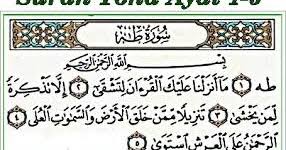 Surah Toha Ayat 1-5
سُورَةُ طه
بِسْمِ اللَّهِ الرَّحْمَٰنِ الرَّحِيمِ
طه ۝١ مَا أَنزَلْنَا عَلَيْكَ الْقُرْءَانَ لِتَشْقَىٰ ۝٢ إِلَّا تَذْكِرَةً
لِّمَن يَخْشَىٰ ۝٣ تَنزِيلًا مِّمَّنْ خَلَقَ الْأَرْضَ وَالسَّمَٰوَٰتِ الْعُلَى ۝٤
الرَّحْمَٰنُ عَلَى الْعَرْشِ اسْتَوَىٰ ۝٥